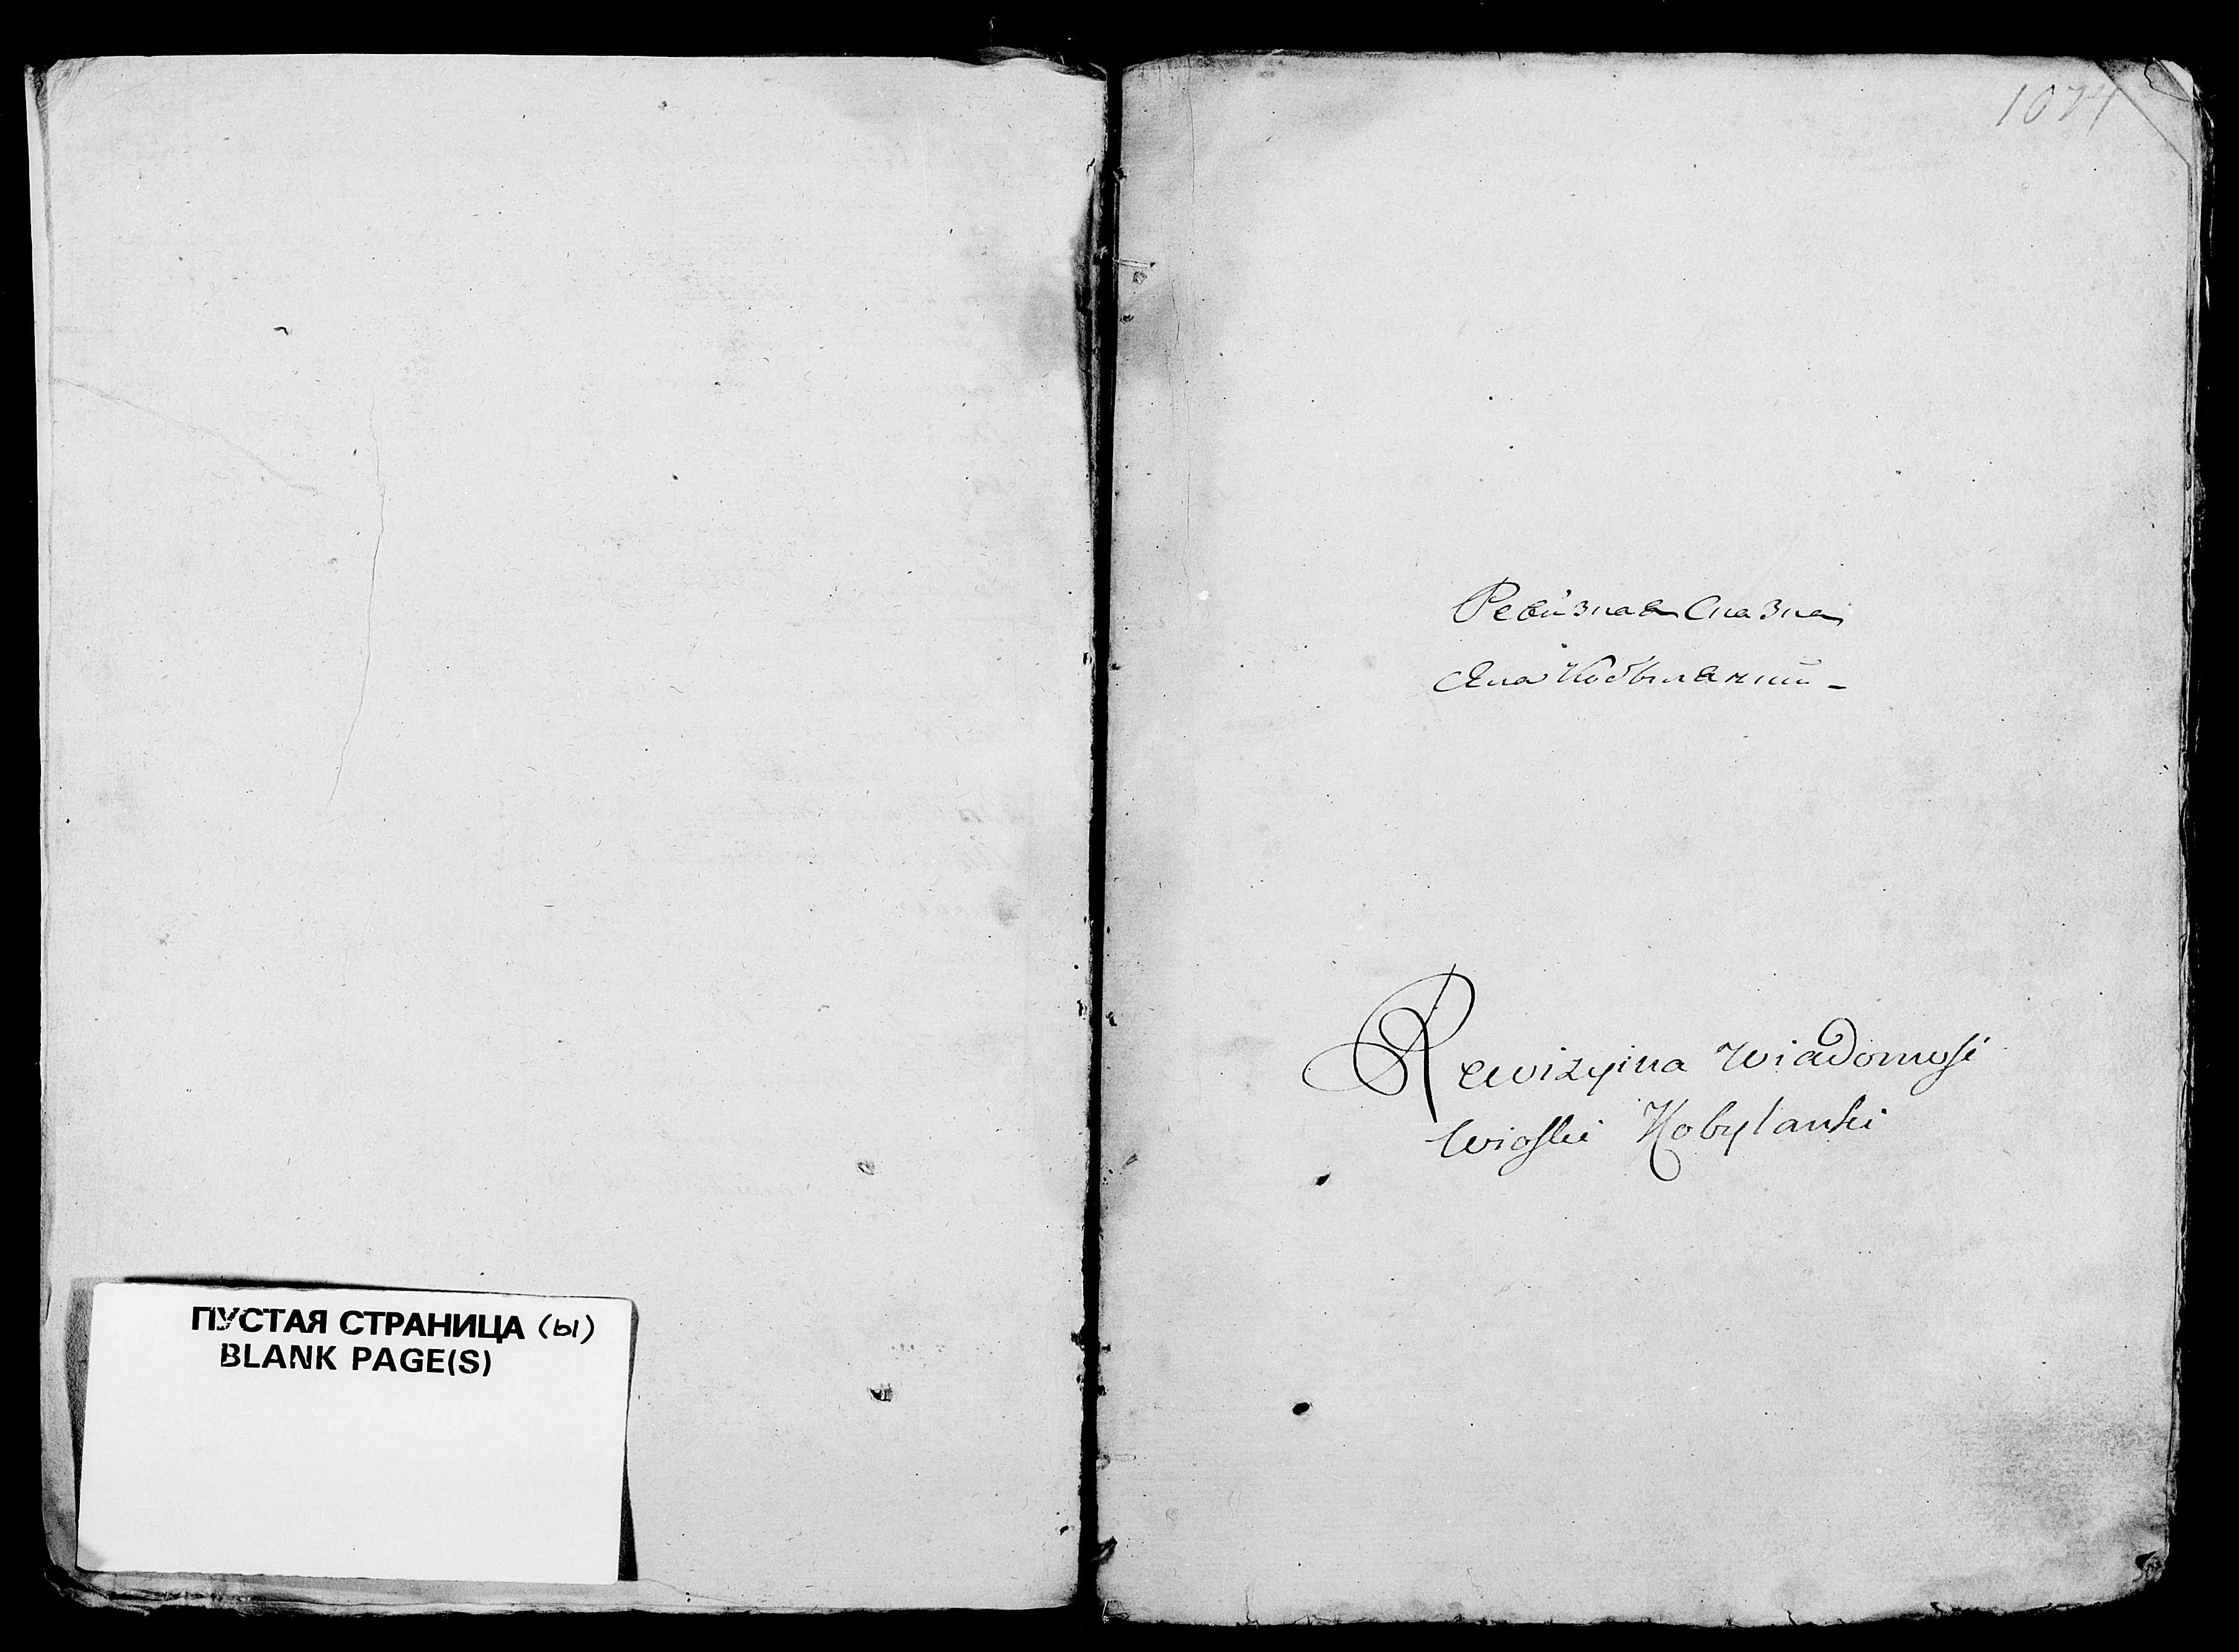 ПУСТАЯ СТРАНИЦА (ы)
BLANK PAGE(S)
1074
Ревизная Сказка
Села Кобылянки -
Rewizyina Wiadomość
Wioski Kobylanki